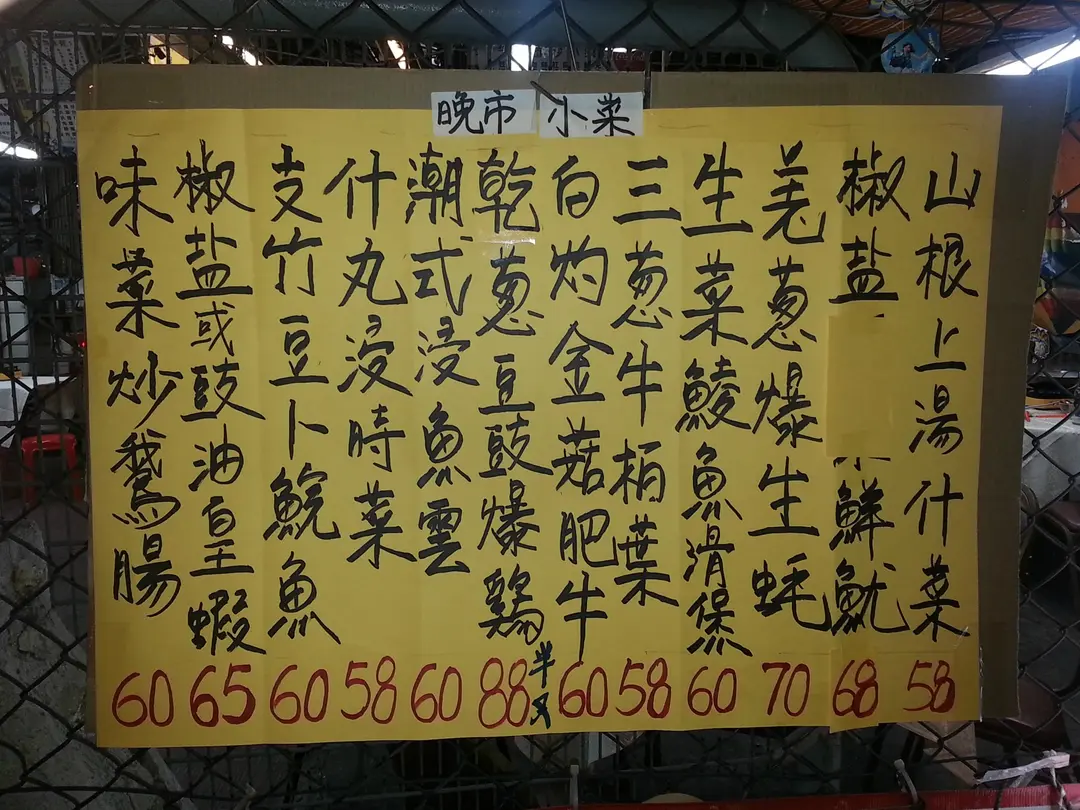 晚市 小菜
山根上湯什菜 58
椒盐鮮魷 68
羌葱爆生蚝 70
生菜鯪魚滑煲 60
三葱牛栢葉 58
白灼金菇肥牛 60
乾葱豆豉爆鷄 88 半隻
潮式浸魚雲 60
什丸浸時菜 58
支竹豆卜鯇魚 60
椒盐或豉油皇蝦 65
味菜炒鵝腸 60